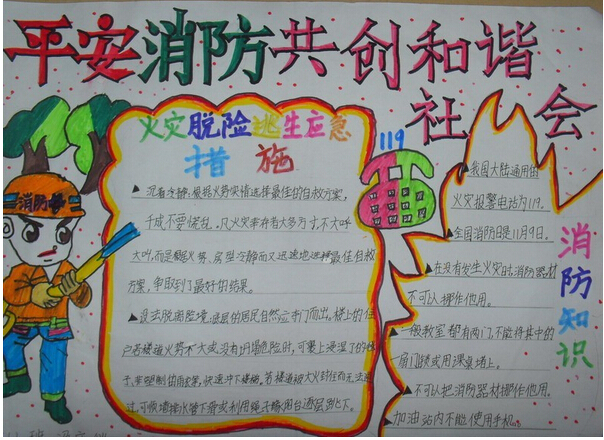 平安消防共创和谐
社会
火灾脱险逃生应急
措施
119
消防
▲沉着冷静,根据火势灾情选择最佳的自救方案,
千成不要慌乱。只火李存有大多万寸,不大叫
大叫,而是 火势、房型冷静而又迅速地选择最佳自救
方案,争取到了最好的结果。
▲设法脱离险境,底层的居民自然应夺门而出。楼上的住
户若楼道火势不大或没有坍塌危险时,可裹上浸湿了的
快速冲下楼梯。若楼道被大火封住而无法通
过,可顺墙排水管下滑或利用绳子 阳台 下。
▲我国大陆通用的
火灾报警电话为119。
▲全国消防日是11月9日。
▲在没有发生火灾时消防器材
不可以挪作他用。
一般教室都有两门,不能将其中的
一扇门锁或用课桌堵上。
▲不可以把消防器材挪作他用。
▲加油站内不能使用手机。
消防知识